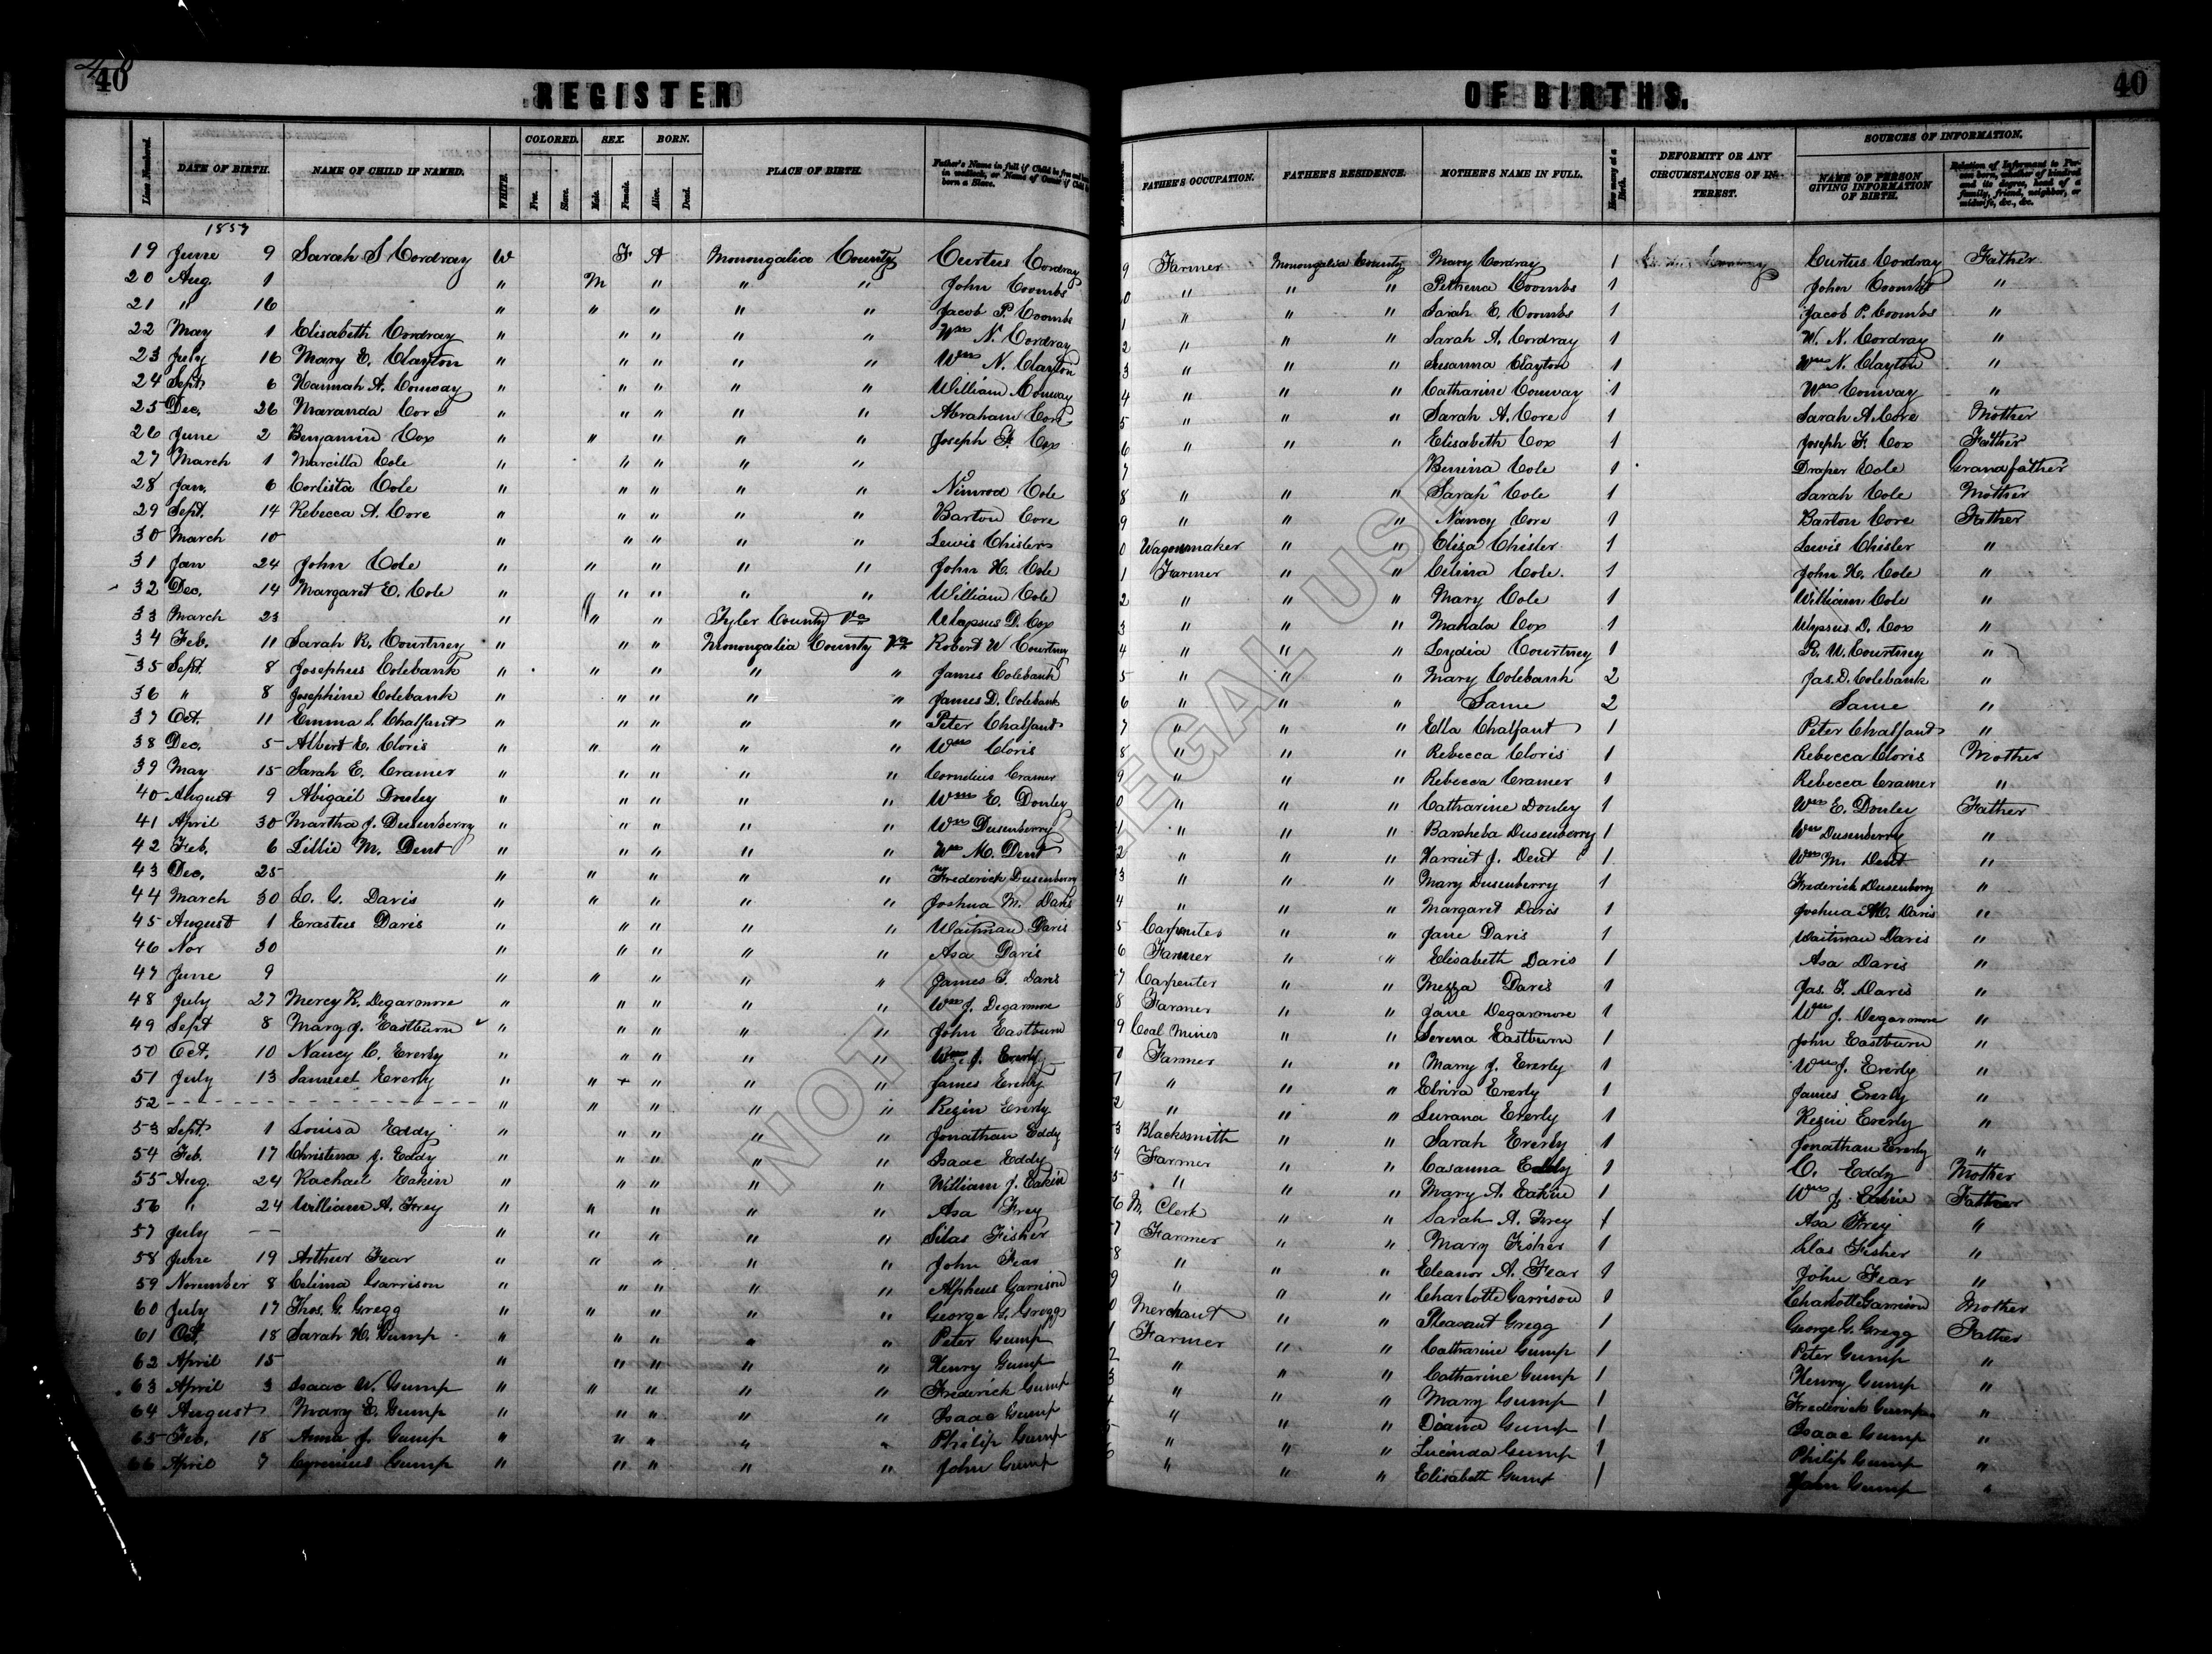 40
REGISTER OF BIRTHS.
40
Lines Numbered. DATE OF BIRTH. NAME OF CHILD IF NAMED. WHITE. COLORED. Free. Slave. SEX. Male. Female. BORN. Alive. Dead. PLACE OF BIRTH. Father's Name in full if Child be free and born in wedlock, or Name of Owner if Child be born a Slave. FATHER'S OCCUPATION. FATHER'S RESIDENCE. MOTHER'S NAME IN FULL. How many at a Birth. DEFORMITY OR ANY CIRCUMSTANCES OF INTEREST. SOURCES OF INFORMATION. NAME OF PERSON GIVING INFORMATION OF BIRTH. Relation of Informant to Person born, whether of kindred and its degree, head of a family, friend, neighbor, or midwife, &c., &c.
1857
19 June 9 Sarah S Cordray W F A Monongalia County Curtus Cordray 9 Farmer Monongalia County Mary Cordray 1 Curtus Cordray Father
20 Aug. 1 " M " " " John Coombs 0 " " " Pethena Coombs 1 John Coombs "
21 " 16 " " " " " Jacob P. Coombs 1 " " " Sarah E. Coombs 1 Jacob P. Coombs "
22 May 1 Elisabeth Cordray " " " " " Wm N. Cordray 2 " " " Sarah A. Cordray 1 W. N. Cordray "
23 July 16 Mary E. Clayton " " " " " Wm N. Clayton 3 " " " Susanna Clayton 1 Wm N. Clayton "
24 Sept. 6 Hannah A. Conway " " " " " William Conway 4 " " " Catharine Conway 1 Wm Conway "
25 Dec. 26 Maranda Core " " " " " Abraham Core 5 " " " Sarah A. Core 1 Sarah A. Core Mother
26 June 2 Benjamin Cox " " " " " Joseph F. Cox 6 " " " Elisabeth Cox 1 Joseph F. Cox Father
27 March 1 Marcilla Cole " " " " " 7 Cole 1 Draper Cole Grandfather
28 Jan. 6 Corlista Cole " " " " " Nimrod Cole 8 " " " Sarah Cole 1 Sarah Cole Mother
29 Sept. 14 Rebecca A. Core " " " " " Barton Core 9 " " " Nancy Core 1 Barton Core Father
30 March 10 " " " " " Lewis Chisler 0 Wagonmaker " " Eliza Chisler 1 Lewis Chisler "
31 Jan 24 John Cole " " " " " John H. Cole 1 Farmer " " Celina Cole. 1 John H. Cole "
32 Dec. 14 Margaret E. Cole " " " " " William Cole 2 " " " Mary Cole 1 William Cole "
33 March 23 " " " Tyler County Va Ulypsus D. Cox 3 " " " Mahala Cox 1 Ulypsus D. Cox "
34 Feb. 11 Sarah R. Courtney " " " Monongalia County Va Robert W Courtney 4 " " " Lydia Courtney 1 R. W. Courtney "
35 Sept. 8 Josephus Colebank " " " " " James Colebank 5 " " " Mary Colebank 2 Jas. D. Colebank "
36 " 8 Josephine Colebank " " " " " James D. Colebank 6 " " " Same 2 Same "
37 Oct. 11 Emma L Chalfant " " " " " Peter Chalfant 7 " " " Ella Chalfant 1 Peter Chalfant "
38 Dec. 5 Albert E. Cloris " " " " " Wm Cloris 8 " " " Rebecca Cloris 1 Rebecca Cloris Mother
39 May 15 Sarah E. Cramer " " " " " Cornelius Cramer 9 " " " Rebecca Cramer 1 Rebecca Cramer "
40 August 9 Abigail Donley " " " " " Wm E. Donley 0 " " " Catharine Donley 1 Wm E. Donley Father
41 April 30 Martha J. Dusenberry " " " " " Wm Dusenberry 1 " " " Barsheba Dusenberry 1 Wm Dusenberry "
42 Feb. 6 Lillie M. Dent " " " " " Wm M. Dent 2 " " " Harriet J. Dent 1 Wm M. Dent "
43 Dec. 25 " " " " " Frederick Dusenberry 3 " " " Mary Dusenberry 1 Frederick Dusenberry "
44 March 30 L. G. Davis " " " " " Joshua M. Davis 4 " " " Margaret Davis 1 Joshua M. Davis "
45 August 1 Erastus Davis " " " " " Waitman Davis 5 Carpenter " " Jane Davis 1 Waitman Davis "
46 Nov 30 " " " " " Asa Davis 6 Farmer " " Elisabeth Davis 1 Asa Davis "
47 June 9 " " " " " James T. Davis 7 Carpenter " " Davis 1 Jas. T. Davis "
48 July 27 Mercy R. Degarmore " " " " " Wm J. Degarmore 8 Farmer " " Jane Degarmore 1 Wm J. Degarmore "
49 Sept 8 Mary J. Eastburn " " " " " John Eastburn 9 Coal Miner " " Serena Eastburn 1 John Eastburn "
50 Oct. 10 Nancy C. Everly " " " " " Wm J. Everly 0 Farmer " " Mary J. Everly 1 Wm J. Everly "
51 July 13 Samuel Everly " " + " " " James Everly 1 " " " Elvira Everly 1 James Everly "
52 - - - - - - " " " " " Rezin Everly 2 " " " Lurana Everly 1 Rezin Everly "
53 Sept. 1 Louisa Eddy " " " " " Jonathan Eddy 3 Blacksmith " " Sarah Everly 1 Jonathan Everly "
54 Feb. 17 Christena J. Eddy " " " " " Isaac Eddy 4 Farmer " " Casanna Eddy 1 C. Eddy Mother
55 Aug. 24 Rachael Eakin " " " " " William J. Eakin 5 " " " Mary A. Eakin 1 Wm J. Eakin Father
56 " 24 William A. Frey " " " " " Asa Frey 6 M. Clerk " " Sarah A. Frey 1 Asa Frey "
57 July -- " " " " " Silas Fisher 7 Farmer " " Mary Fisher 1 Silas Fisher "
58 June 19 Arthur Fear " " " " " John Fear 8 " " " Eleanor A. Fear 1 John Fear "
59 November 8 Celima Garrison " " " " " Alpheus Garrison 9 " " " Charlotte Garrison 1 Charlotte Garrison Mother
60 July 17 Thos. G. Gregg " " " " " George G. Gregg 0 Merchant " " Pleasant Gregg 1 George G. Gregg Father
61 Oct. 18 Sarah H. Gump " " " " " Peter Gump 1 Farmer " " Catharine Gump 1 Peter Gump "
62 April 15 " " " " " Henry Gump 2 " " " Catharine Gump 1 Henry Gump "
63 April 3 Isaac W. Gump " " " " " Frederick Gump 3 " " " Mary Gump 1 Frederick Gump "
64 August Mary E. Gump " " " " " Isaac Gump 4 " " " Diana Gump 1 Isaac Gump "
65 Feb. 18 Anna J. Gump " " " " " Philip Gump 5 " " " Lucinda Gump 1 Philip Gump "
66 April 7 Cyrenius Gump " " " " " John Gump 6 " " " Elisabeth Gump 1 John Gump "
NOT FOR LEGAL USE